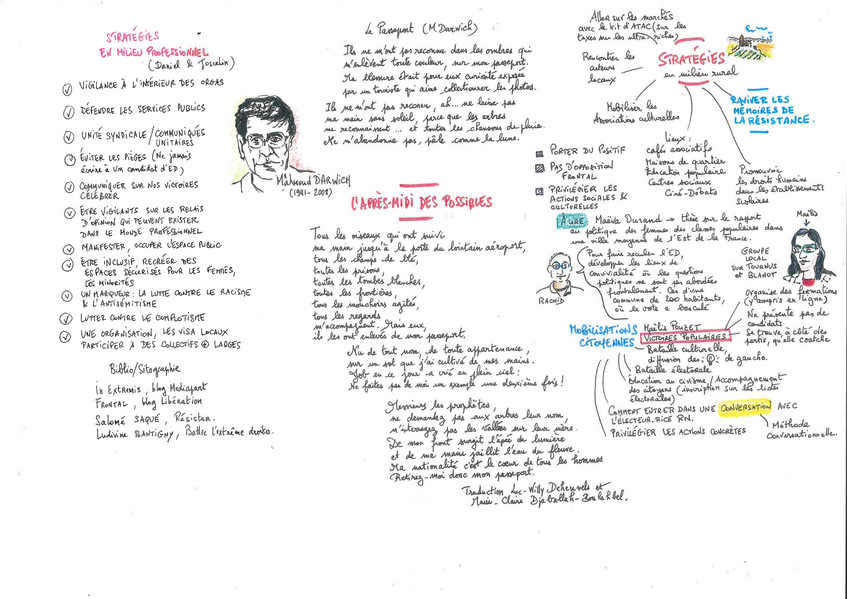 STRATÉGIES
EN MILIEU PROFESSIONNEL
(David & Joscelin)
VIGILANCE À L'INTÉRIEUR DES ORGAS
DÉFENDRE LES SERVICES PUBLICS
UNITÉ SYNDICALE / COMMUNIQUÉS
UNITAIRES
ÉVITER LES PIÈGES (Ne jamais
écrire à un candidat d'ED)
COMMUNIQUER SUR NOS VICTOIRES
CÉLÉBRER
ÊTRE VIGILANTS SUR LES RELAIS
D'OPINION QUI PEUVENT EXISTER
DANS LE MONDE PROFESSIONNEL
MANIFESTER, OCCUPER L'ESPACE PUBLIC
ÊTRE INCLUSIF, RECRÉER DES
ESPACES SÉCURISÉS POUR LES FEMMES,
LES MINORITÉS
UN MARQUEUR : LA LUTTE CONTRE LE RACISME
& L'ANTISÉMITISME
LUTTER CONTRE LE COMPLOTISME
UNE ORGANISATION, LES VISA LOCAUX
PARTICIPER À DES COLLECTIFS ⊕ LARGES
Biblio/Sitographie
In Extremis, blog Mediapart
FRONTAL, blog Libération
Salomé SAQUÉ, Résister.
Ludivine BANTIGNY, Battre l'extrême droite.
Le Passeport (M. Darwich)
Ils ne m'ont pas reconnu dans les ombres qui
m'enlèvent toute couleur, sur mon passeport.
Ma blessure était pour eux curiosité exposée
par un touriste qui aime collectionner les photos.
Ils ne m'ont pas reconnu, ah... ne laisse pas
ma main sans soleil, parce que les arbres
me reconnaissent ... et toutes les chansons de pluie.
Ne m'abandonne pas, pâle comme la lune.
Mahmoud DARWICH
(1941 - 2008)
L'APRÈS-MIDI DES POSSIBLES
Tous les oiseaux qui ont suivi
ma main jusqu'à la porte du lointain aéroport,
tous les champs de blé,
toutes les prisons,
toutes les tombes blanches,
toutes les frontières,
tous les mouchoirs agités,
tous les regards
m'accompagnent. Mais eux,
ils les ont enlevés de mon passeport.
Nu de tout nom, de toute appartenance,
sur un sol que j'ai cultivé de mes mains.
Job en ce jour a crié en plein ciel :
Ne faites pas de moi un exemple une deuxième fois !
Messieurs les prophètes,
ne demandez pas aux arbres leur nom,
n'interrogez pas les vallées sur leur mère.
De mon front surgit l'épée de lumière
et de ma main jaillit l'eau du fleuve.
Ma nationalité c'est le cœur de tous les hommes
Retirez-moi donc mon passeport.
Traduction Luc-Willy Deheuvels et
Marie-Claire Djaballah-Boulahbel.
Aller sur les marchés
avec le kit d'ATAC (sur les
taxes sur les ultra-riches)
Rencontrer les
acteurs
locaux
STRATÉGIES
en milieu rural
Mobiliser les
Associations culturelles
RAVIVER LES
MÉMOIRES DE
LA RÉSISTANCE.
Lieux :
cafés associatifs
Maisons de quartier
Éducation populaire
Centres sociaux
Ciné-Débats
Promouvoir
les droits humains
dans les établissements
scolaires
PORTER DU POSITIF
PAS D'OPPOSITION
FRONTAL
PRIVILÉGIER LES
ACTIONS SOCIALES &
CULTURELLES
À LIRE : Maëlis Durand → thèse sur le rapport
au politique des femmes des classes populaires dans
une ville moyenne de l'Est de la France.
Maëlis
RACHID
Pour faire reculer l'ED,
développer les lieux de
convivialité où les questions
politiques ne sont pas abordées
frontalement. Cas d'une
commune de 200 habitants,
où le vote a basculé
GROUPE
LOCAL
SUR TOURNUS
ET BLANOT
MOBILISATIONS
CITOYENNES
Maëlis POUZET
VICTOIRES POPULAIRES
Organise des formations
(y compris en ligne)
Ne présente pas de
candidats
Se trouve à côté des
partis, qu'elle coache
Bataille culturelle,
diffusion des : de gauche.
Bataille électorale
Éducation au civisme / Accompagnement
des citoyens (inscription sur les listes
électorales)
COMMENT ENTRER DANS UNE CONVERSATION AVEC
L'ÉLECTEUR.RICE RN.
PRIVILÉGIER LES ACTIONS CONCRÈTES
Méthode
Conversationnelle.